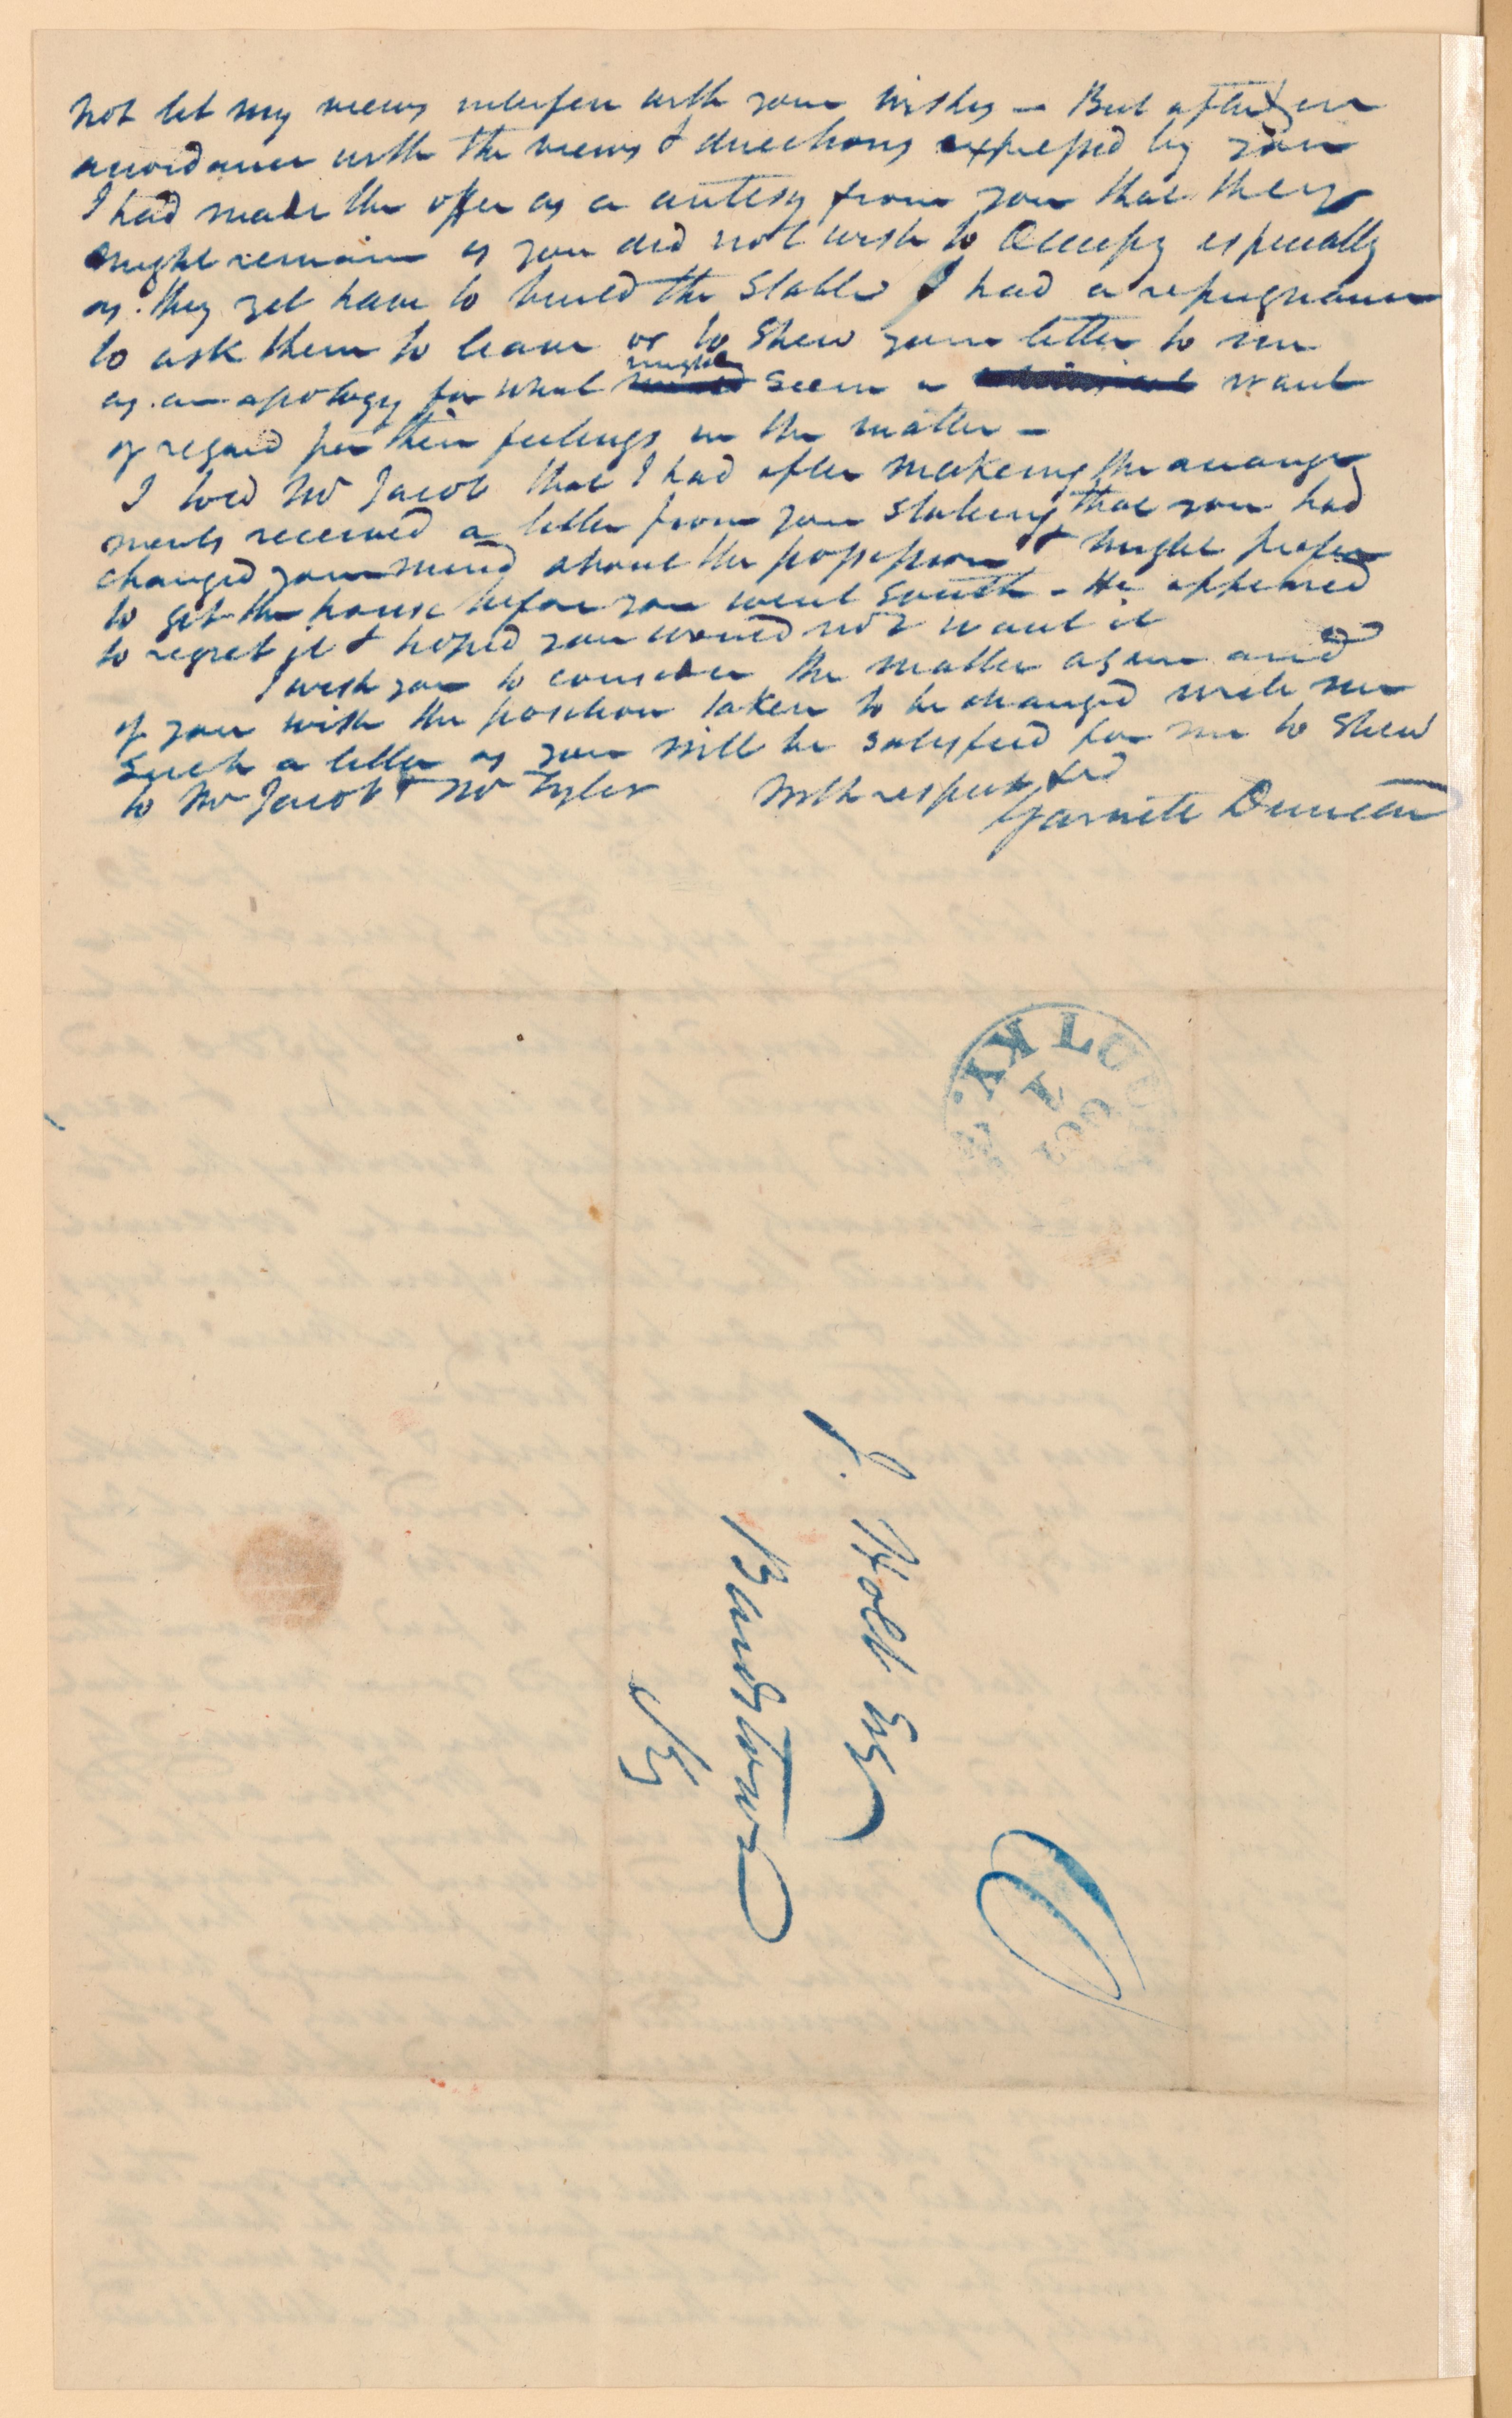 not let my views interfere with your wishes — But after in
accordance with the views & directions expressed by you
I had made the offer as a curtesy from you that they
might remain as you did not wish to Occupy especially
as they yet have to build the Stable I had a repugnance
to ask them to leave or to Shew your letter to me
as an apology for what might seem a want
of regard for their feelings in the matter —
I told Mr Jacob that I had after makeing the arrange
ments received a letter from you stateing that you had
changed your mind about the possession & might prefer
to get the house before you went South — He appeared
to regret it & hoped you would not want it
I wish you to consider the matter again and
if you wish the position taken to be changed write me
Such a letter as you will be satisfied for me to Shew
to Mr Jacob & Mr Tyler with respect
Garnett Duncan
LOU KY.
OCT
J. Holt Esq
Bardstown
Ky